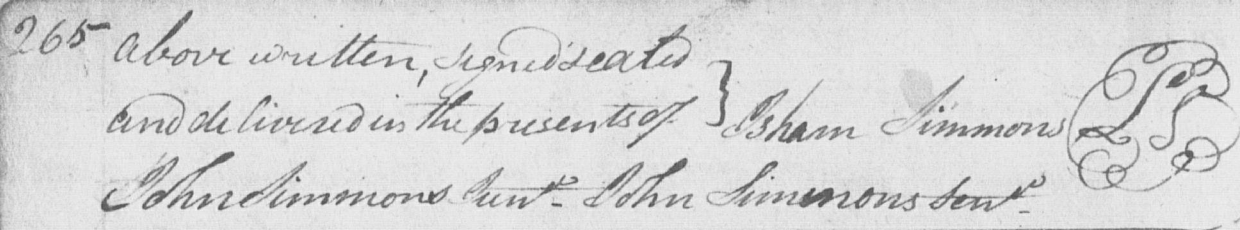 265 above written, signed sealed
and delivered in the presents of } Isham Simmons LS
John Simmons Junr. John Simmons Senr.